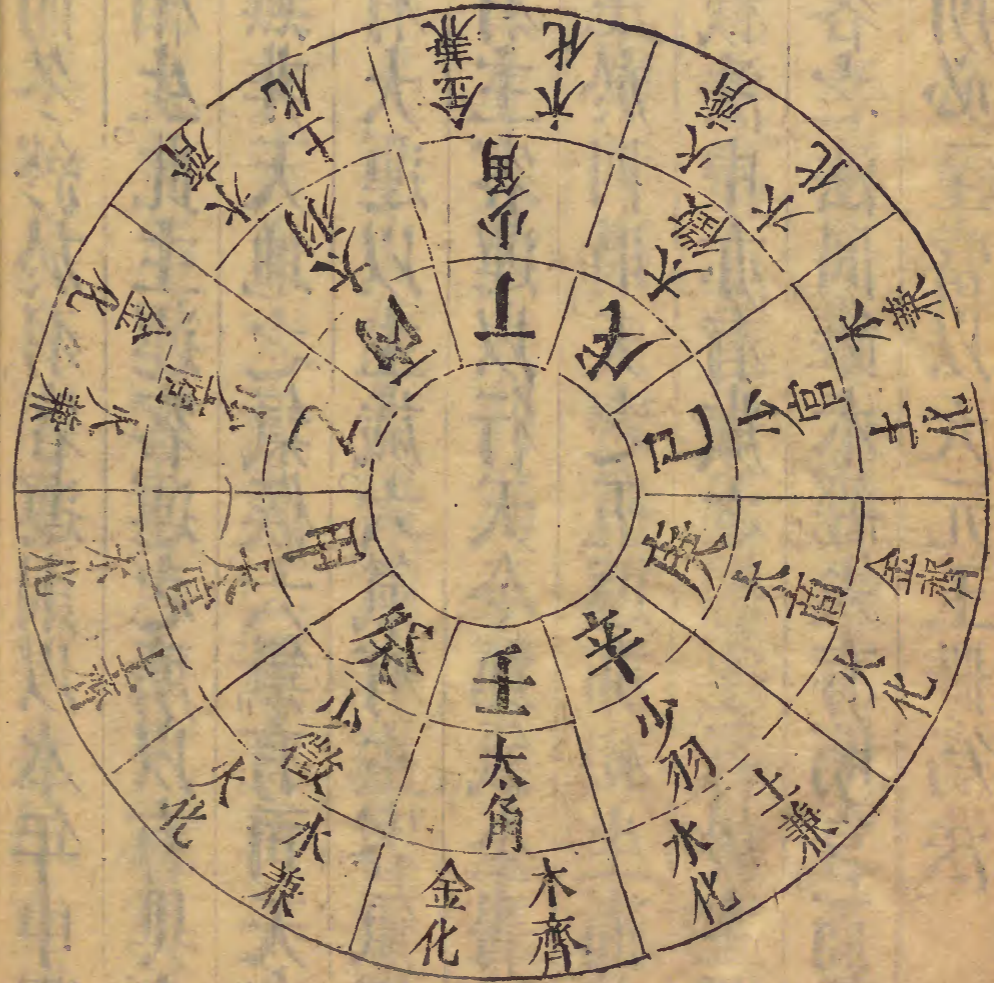 甲
太宮
土齊
木化
乙
少商
火兼
金化
丙
太羽
水齊
土化
丁
少角
金兼
木化
戊
太徵
火齊
水化
己
少宮
木兼
土化
庚
太商
金齊
火化
辛
少羽
土兼
水化
壬
太角
木齊
金化
癸
少徵
水兼
火化